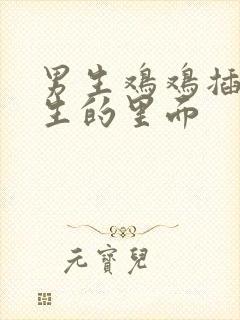 男生鸡鸡插
生的里面
元寶兒